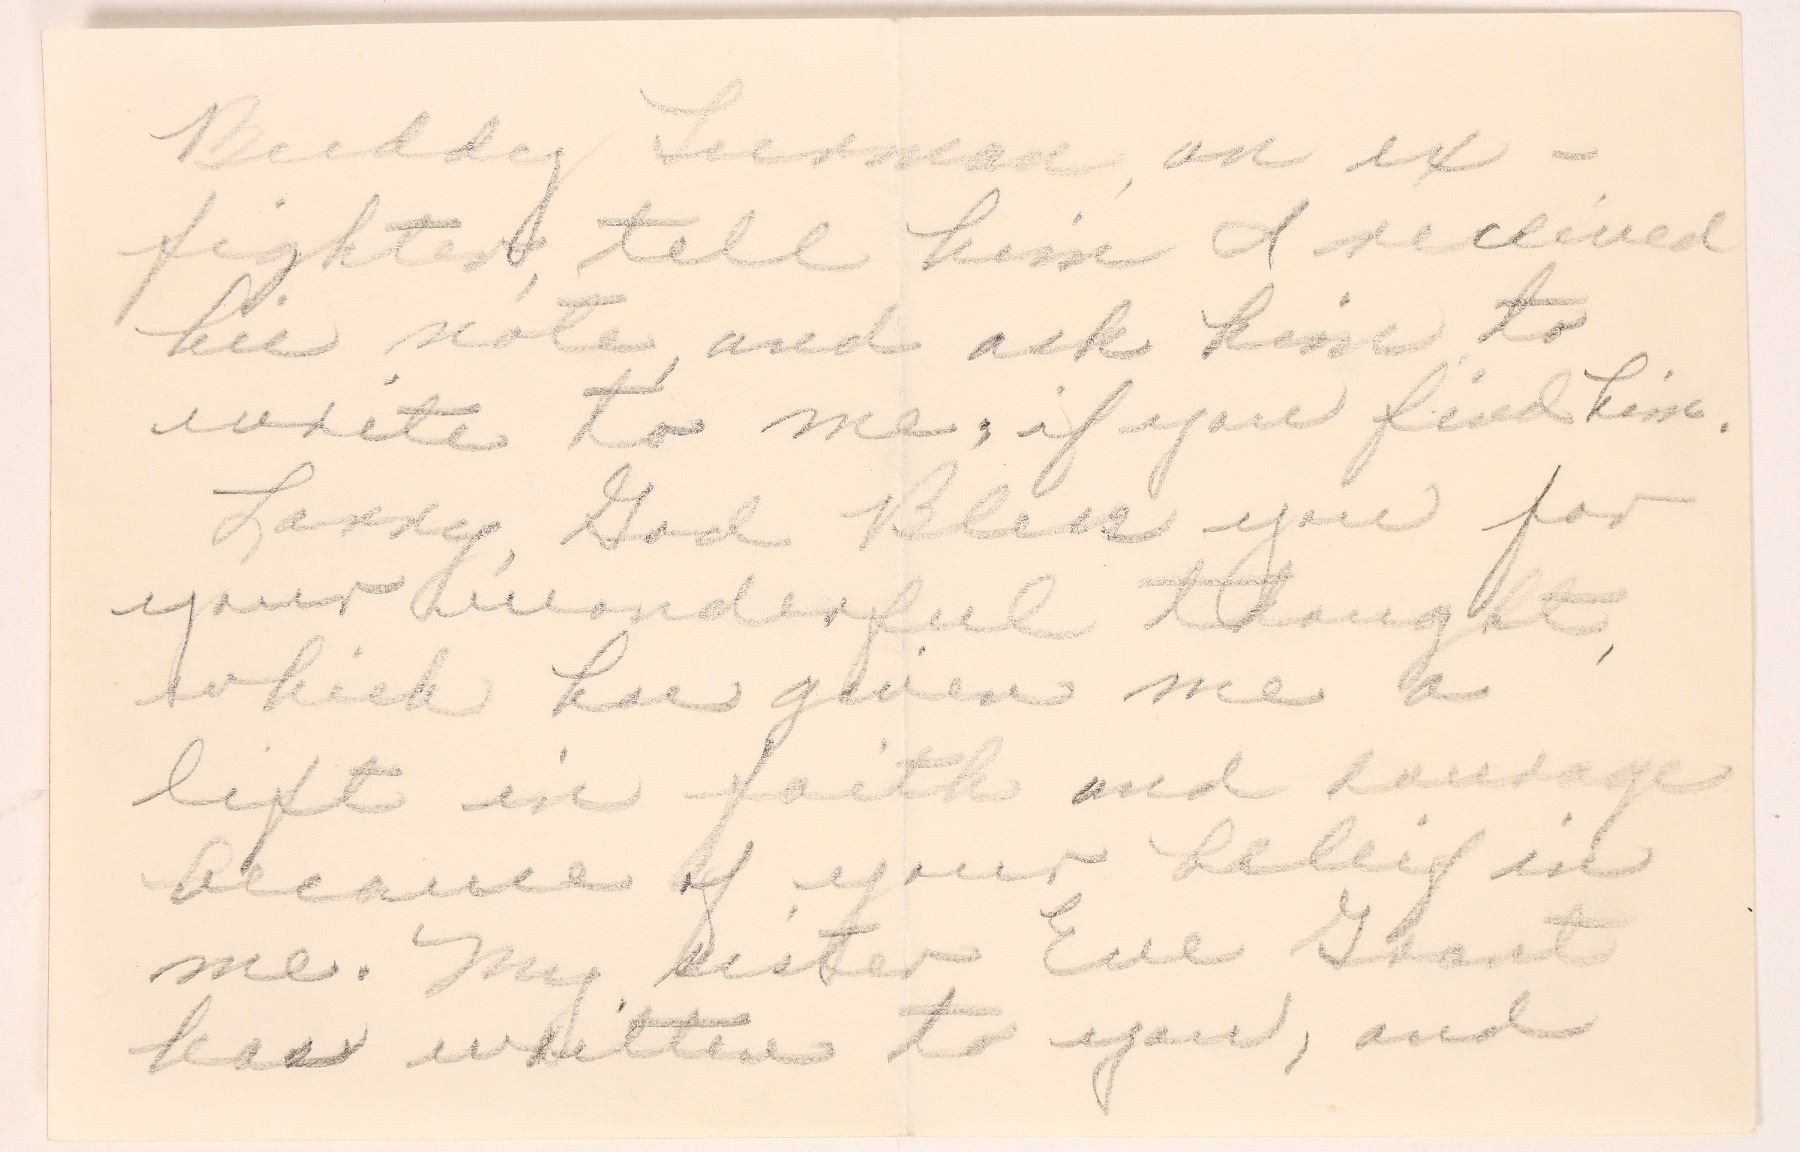 Buddy Furman, an ex -
fighter, tell him I received
his note, and ask him to
write to me, if you find him.
Larry, God Bless you for
your wonderful thought,
which has given me a
lift in faith and courage
because of your beleif in
me. My sister Eve Grant
has written to you, and